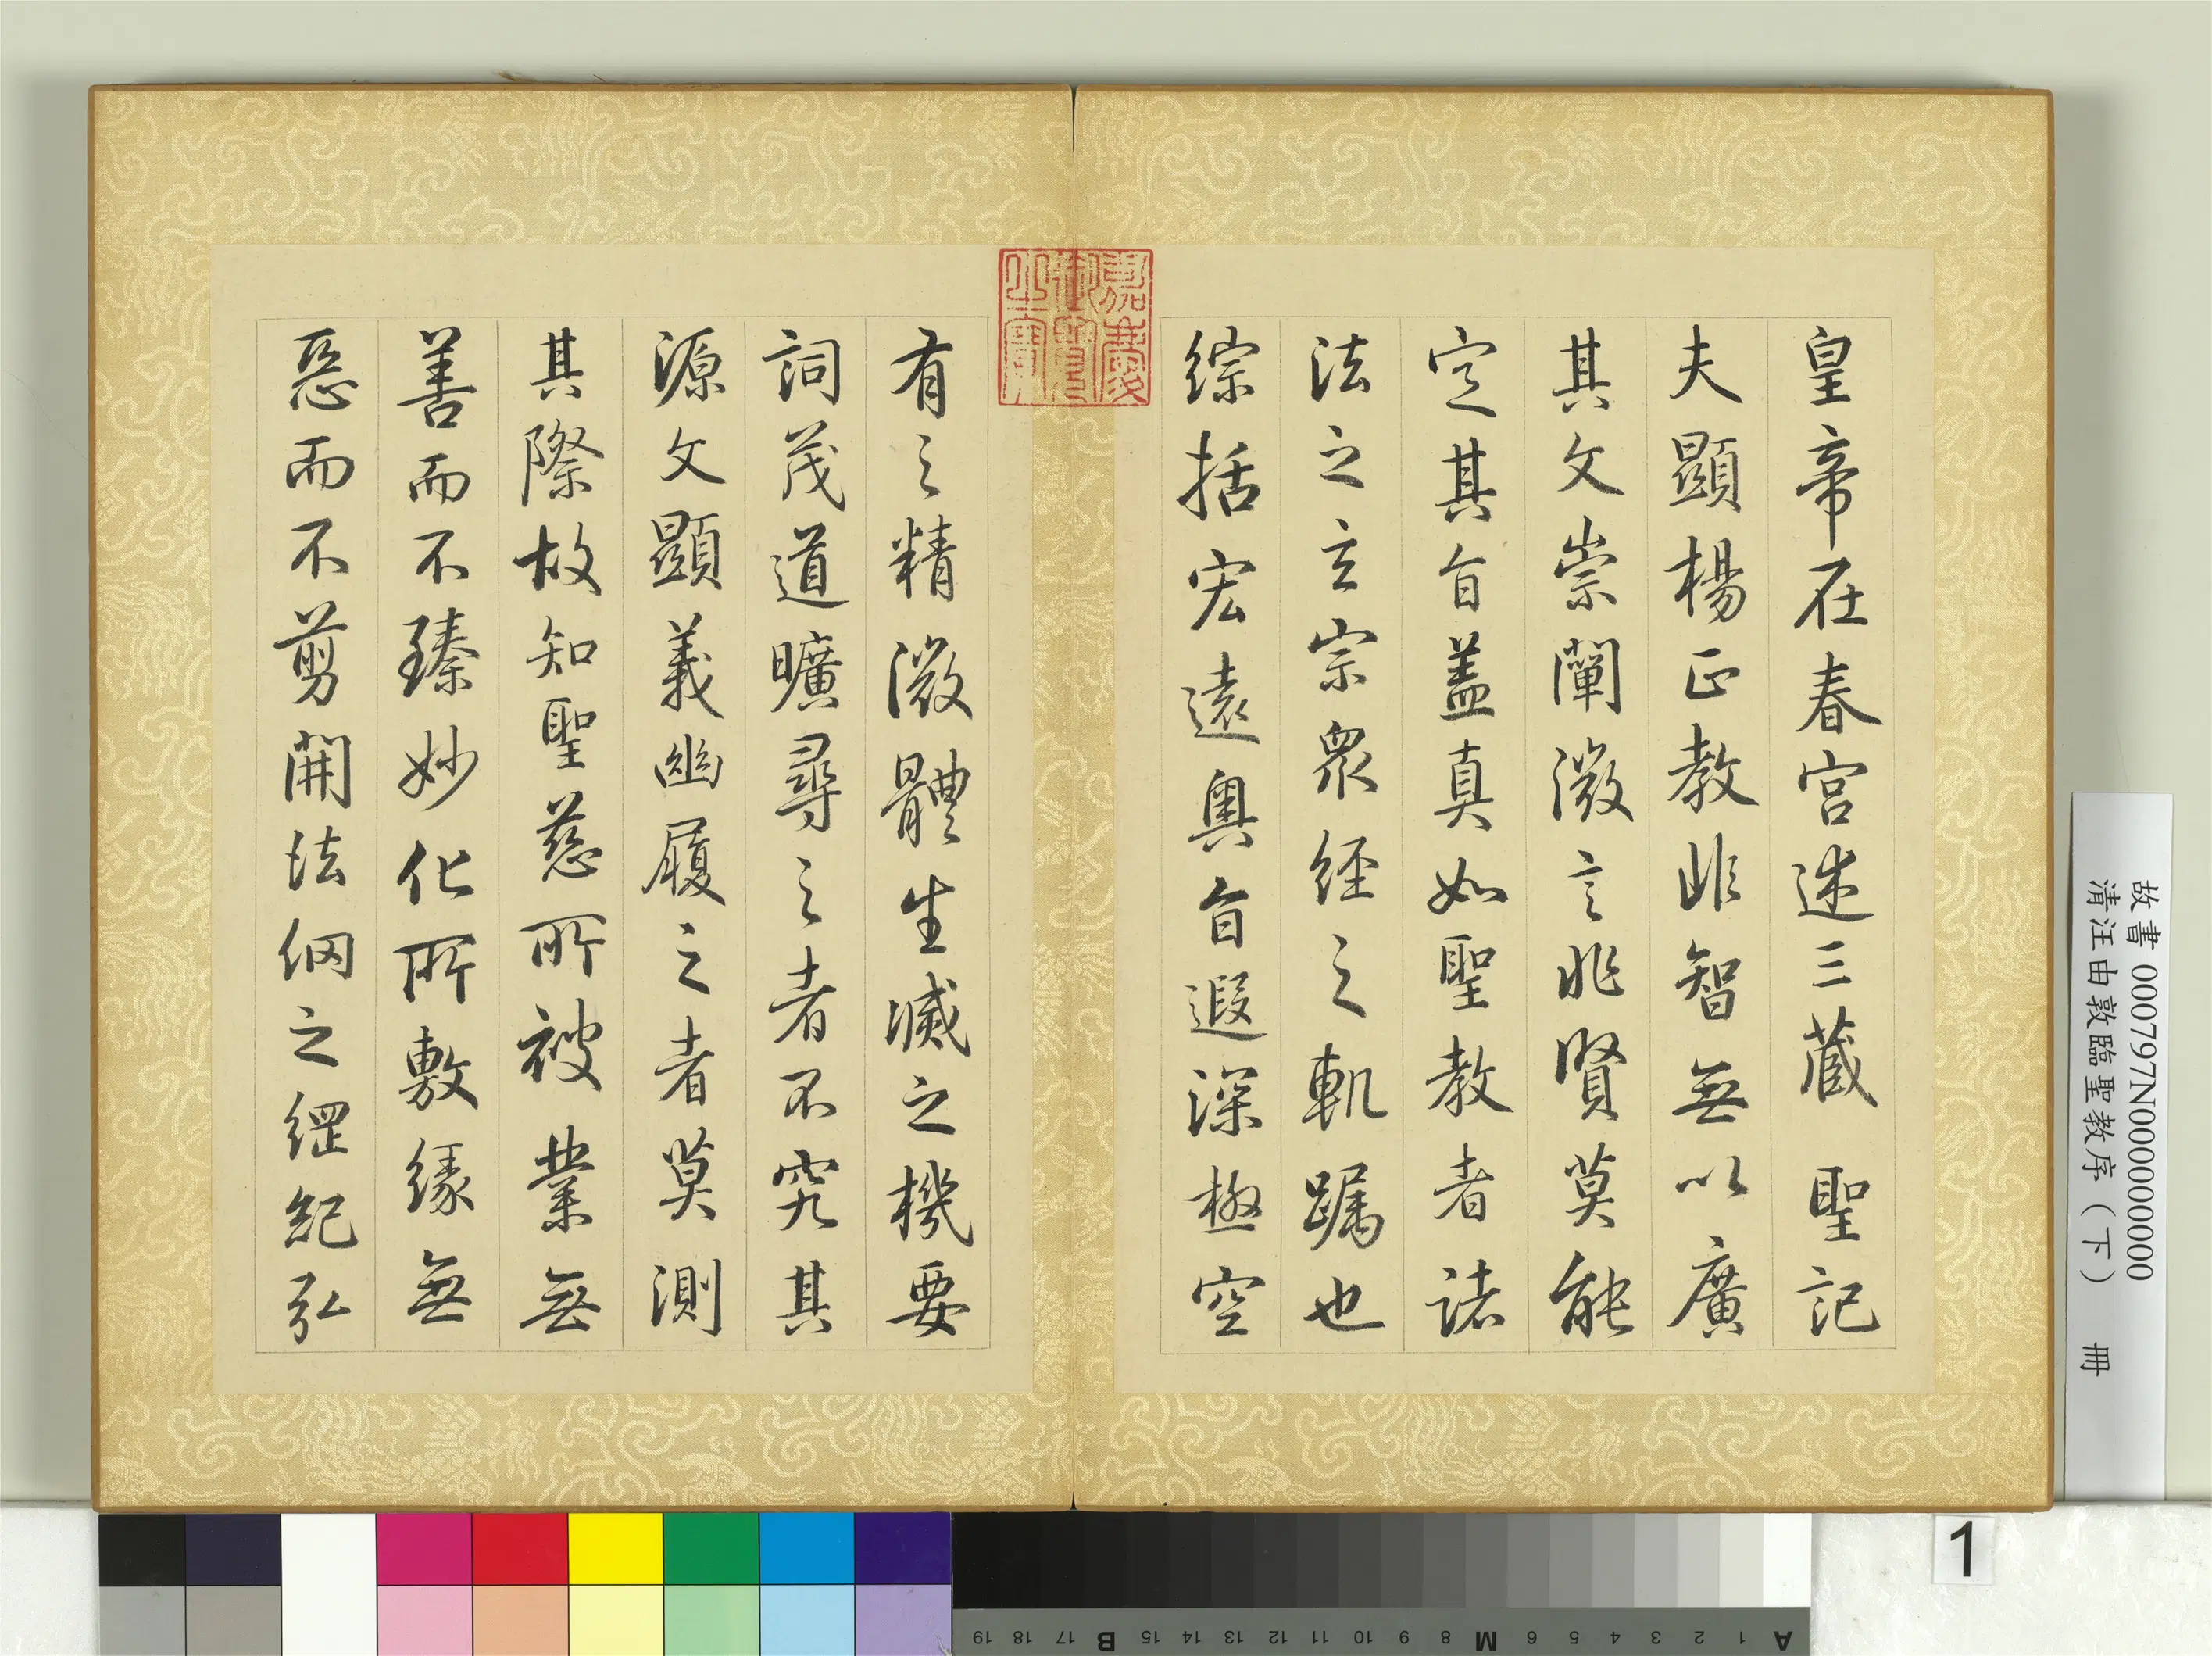 皇帝在春宮述三藏聖記
夫顯楊正教非智無以廣
其文崇闡微言非賢莫能
定其旨盖真如聖教者諸
法之玄宗眾經之軌躅也
綜括宏遠奧旨遐深極空
有之精微體生滅之機要
詞茂道曠尋之者不究其
源文顯義幽履之者莫測
其際故知聖慈所被業無
善而不臻妙化所敷緣無
惡而不剪開法網之綱紀弘
嘉慶
御覽
之寶
故書 000797N000000000
清汪由敦臨聖教序（下） 冊
1
A 1 2 3 4 5 6 M 8 9 10 11 12 13 14 15 B 17 18 19